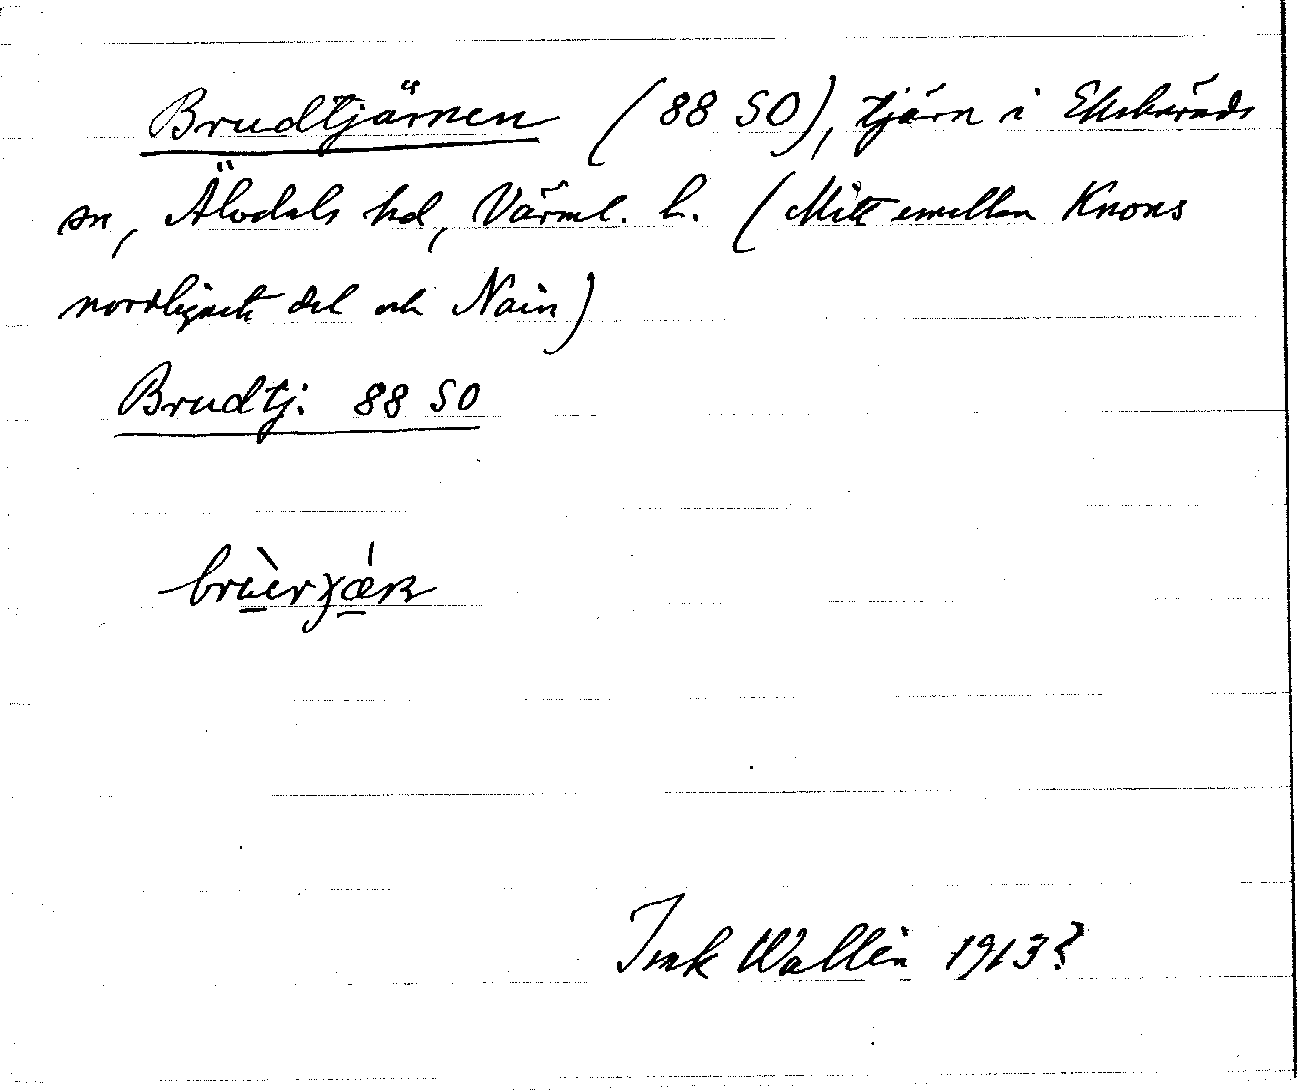 Brudtjärnen (88 SO), tjärn i Ekshärads
sn, Älvdals hd, Värml. l. (Mitt emellan Knons
nordligaste del och Nain)
Brudtj. 88 SO
Wallén 1913?